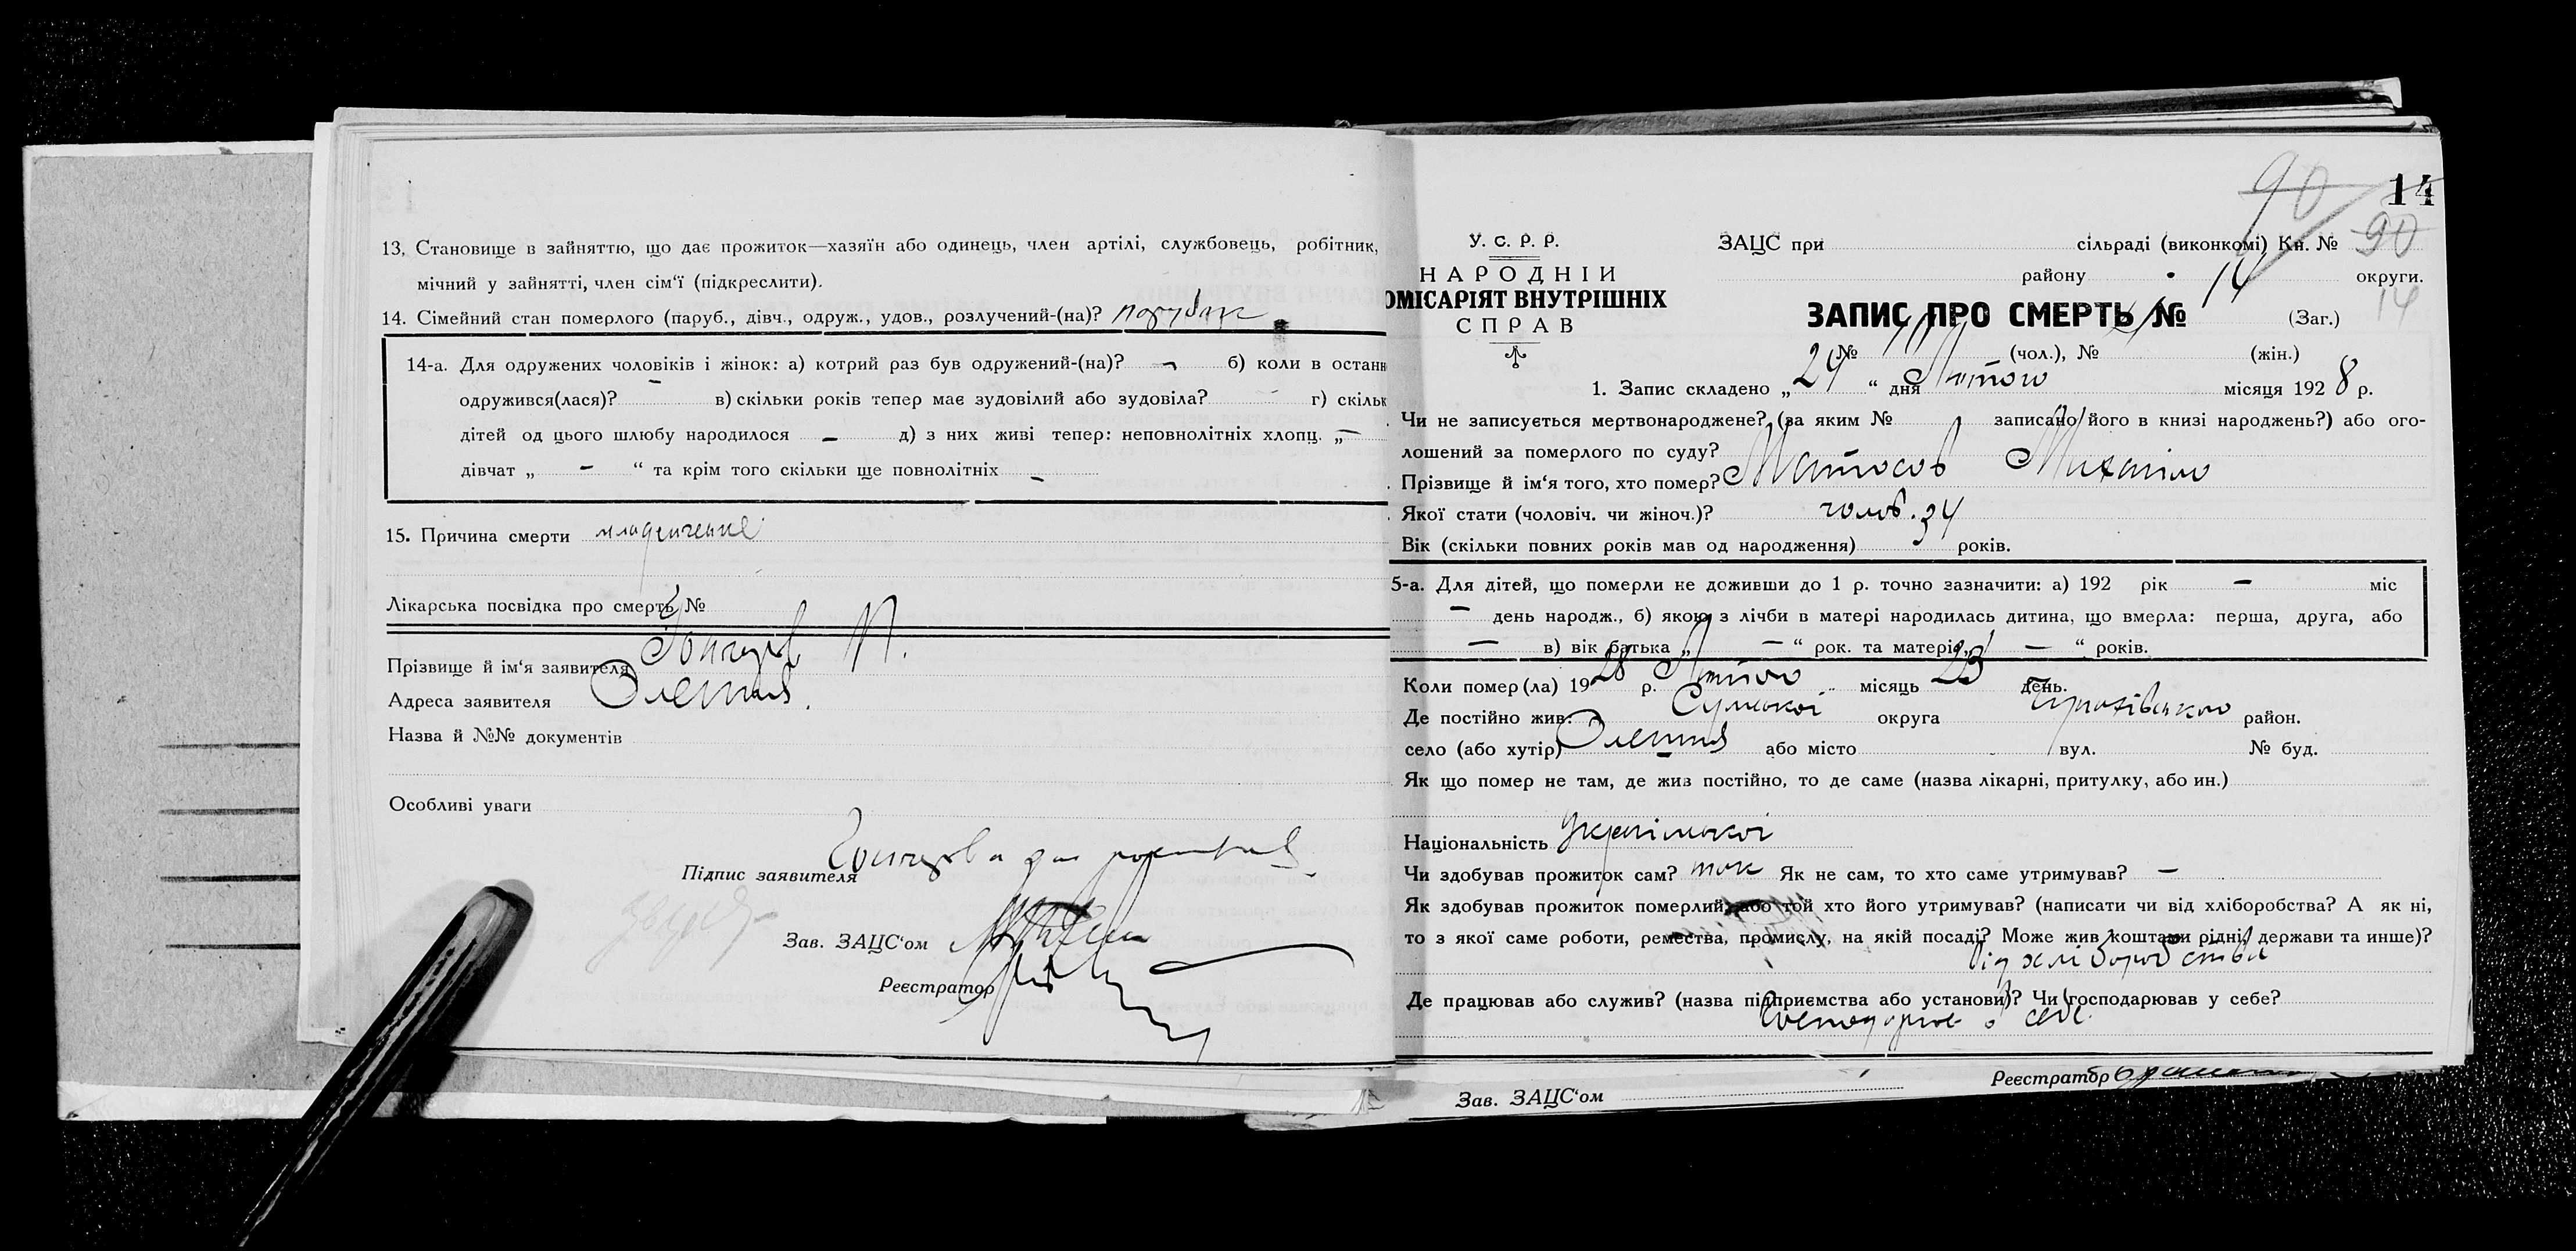 13. Становище в зайняттю, що дає прожиток—хазяїн або одинець, член артілі, службовець, робітник,
мічний у зайнятті, член сім‘ї (підкреслити).
14. Сімейний стан померлого (паруб., дівч., одруж., удов., розлучений-(на)? парубок
14-а. Для одружених чоловіків і жінок: а) котрий раз був одружений-(на)? — б) коли в останн
одружився(лася)? — в) скільки років тепер має зудовілий або зудовіла? г) скільк
дітей од цього шлюбу народилося — д) з них живі тепер: неповнолітніх хлопц. „—
дівчат „ — “ та крім того скільки ще повнолітніх —
15. Причина смерти
Лікарська посвідка про смерть №
Прізвище й ім‘я заявителя П.
Адреса заявителя
Назва й №№ документів
Особливі уваги
Підпис заявителя
Зав. ЗАЦС‘ом
Реєстратор
14
90
У. С. Р. Р.
НАРОДНІЙ
ОМІСАРІЯТ ВНУТРІШНІХ
СПРАВ
ЗАЦС при сільраді (виконкомі) Кн. № 90
району округи.
ЗАПИС ПРО СМЕРТЬ № 14 (Заг.) 14
№ (чол.), № (жін.)
1. Запис складено „24“ дня Лютого місяця 1928 р.
Чи не записується мертвонароджене? (за яким № записано його в книзі народжень?) або ого-
лошений за померлого по суду?
Прізвище й ім‘я того, хто помер? Михаіло
Якої стати (чоловіч. чи жіноч.)? чолов.
Вік (скільки повних років мав од народження) 34 років.
5-а. Для дітей, що померли не доживши до 1 р. точно зазначити: а) 192 рік — міс
— день народж., б) якою з лічби в матері народилась дитина, що вмерла: перша, друга, або
— в) вік батька „ — “ рок. та матері „ — “ років.
Коли помер(ла) 1928 р. Лютого місяць 23 день.
Де постійно жив: Сумської округа район.
село (або хутір) або місто вул. № буд.
Як що помер не там, де жив постійно, то де саме (назва лікарні, притулку, або ин.)
Національність Української
Чи здобував прожиток сам? так Як не сам, то хто саме утримував? —
Як здобував прожиток померлий, або той хто його утримував? (написати чи від хліборобства? А як ні,
то з якої саме роботи, ремества, промислу, на якій посаді? Може жив коштами рідні, держави та инше)?
Від хліборобства
Де працював або служив? (назва підприємства або установи)? Чи господарював у себе?
Господарював в себе
Зав. ЗАЦС‘ом
Реєстратор